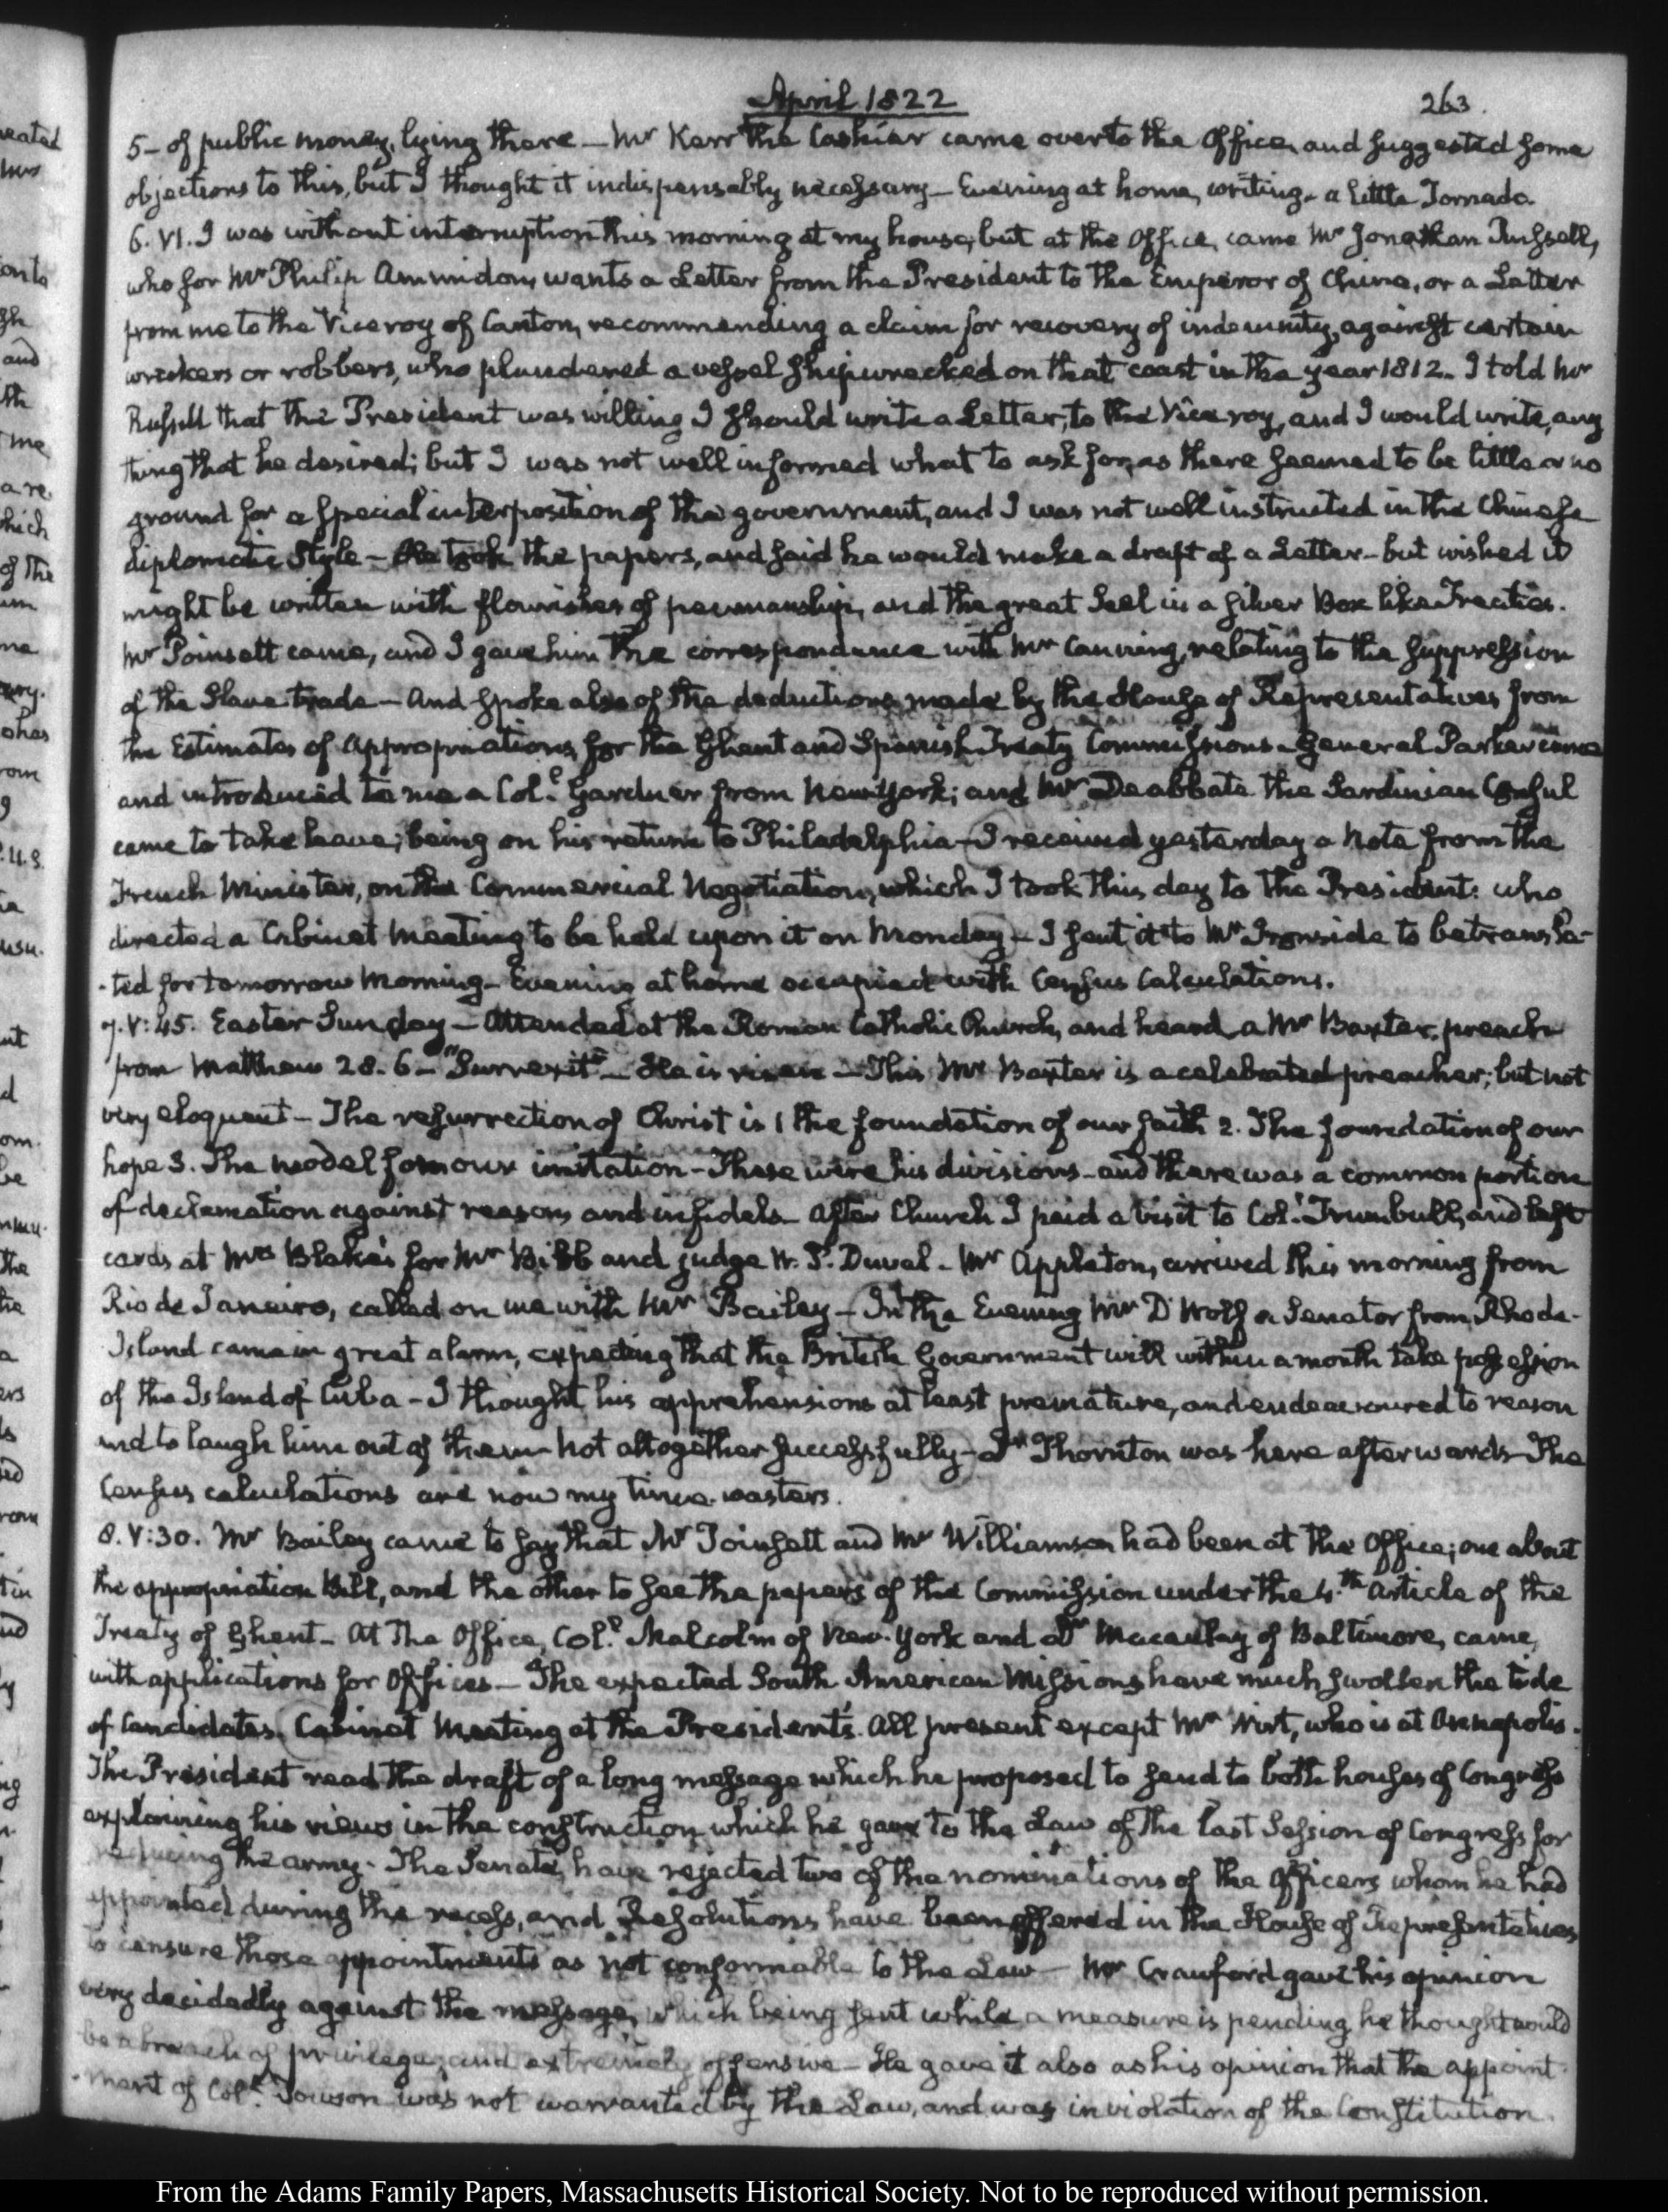 April 1822
263.
5— of public money, lying there — Mr Kerr the Cashier came over to the Office, and suggested some
objections to this, but I thought it indispensably necessary — Evening at home, writing — a little Tornado.
6. VI. I was without interruption this morning at my house; but at the Office, came Mr Jonathan Russell,
who for Mr Philip Ammidon, wants a Letter from the President to the Emperor of China, or a Letter
from me to the Viceroy of Canton, recommending a claim for recovery of indemnity, against certain
wreckers or robbers, who plundered a vessel shipwrecked on that coast in the year 1812. I told Mr
Russell that the President was willing I should write a Letter, to the Viceroy, and I would write, any
thing that he desired; but I was not well informed what to ask for, as there seemed to be little or no
ground for a special interposition of the government, and I was not well instructed in the Chinese
diplomatic Style — He took the papers, and said he would make a draft of a Letter — but wished it
might be written with flourishes of penmanship, and the great Seal in a silver Box like Treaties.
Mr Poinsett came, and I gave him the correspondence with Mr Canning, relating to the suppression
of the Slave trade — And spoke also of the deductions made by the House of Representatives from
the Estimates of Appropriations for the Ghent and Spanish Treaty Commissions — General Parker came
and introduced to me a Col.l Gardner from New York; and Mr Deabbate the Sardinian Consul
came to take leave; being on his return to Philadelphia — I received yesterday a Note from the
French Minister, on the Commercial Negotiation, which I took this day to the President: who
directed a Cabinet Meeting to be held upon it on Monday — I sent it to Mr Ironside to be transla-
-ted for tomorrow Morning — Evening at home occupied with Census Calculations.
7. V:45. Easter Sunday — Attended at the Roman Catholic Church, and heard a Mr Baxter, preach
from Matthew 28. 6 — "Surrexit" — He is risen — This Mr Baxter is a celebrated preacher; but not
very eloquent — The resurrection of Christ is 1 the foundation of our faith 2. The foundation of our
hope 3. The model for our imitation — These were his divisions — and there was a common portion
of declamation against reason and infidels — After Church I paid a visit to Col.l Trumbull, and left
cards at Mrs Blake's for Mr Bibb and judge W. P. Duval — Mr Appleton, arrived this morning from
Rio de Janeiro, called on me with Mr Bailey — In the Evening Mr D'Wolf a Senator from Rhode-
Island came in great alarm, expecting that the British Government will within a month take possession
of the Island of Cuba — I thought his apprehensions at least premature, and endeavoured to reason
and to laugh him out of them — not altogether successfully — Dr Thornton was here afterwards — The
Census calculations are now my time-wasters.
8. V:30. Mr Bailey came to say that Mr Poinsett and Mr Williamson had been at the Office; one about
the appropriation Bill, and the other to see the papers of the Commission under the 4.th Article of the
Treaty of Ghent — At the Office, Col.l Malcolm of New-York and Dr Macaulay of Baltimore, came,
with applications for Offices — The expected South American Missions have much swollen the tide
of Candidates. Cabinet Meeting at the President's. All present except Mr Wirt, who is at Annapolis.
The President read the draft of a long message which he proposed to send to both houses of Congress
explaining his views in the construction which he gave to the Law of the last Session of Congress for
reducing the army. The Senate have rejected two of the nominations of the Officers whom he had
appointed during the recess, and Resolutions have been offered in the House of Representatives
to censure those appointments as not conformable to the Law — Mr Crawford gave his opinion
very decidedly against the message, which being sent while a measure is pending he thought would
be a breach of privilege, and extremely offensive — He gave it also as his opinion that the appoint-
-ment of Col.l Towson was not warranted by the Law, and was in violation of the Constitution.
From the Adams Family Papers, Massachusetts Historical Society. Not to be reproduced without permission.